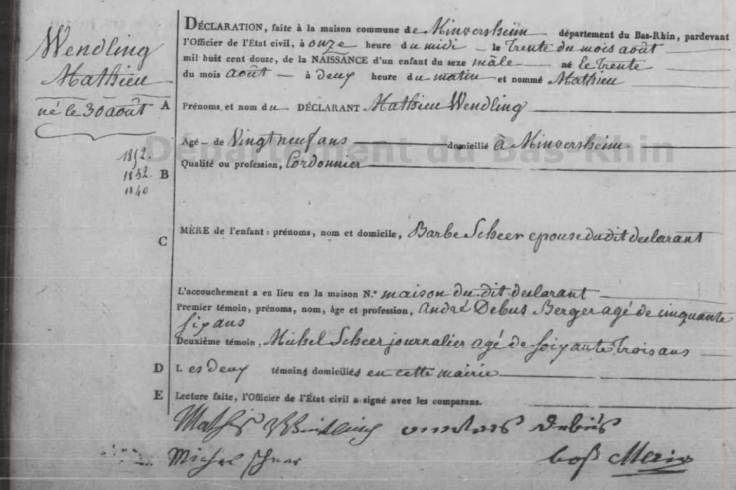 Wendling
Mathieu
né le 30 août
1812.
1852.
1840
DÉCLARATION, faite à la maison commune de Minversheim département du Bas-Rhin, pardevant
l'Officier de l'État civil, à onze heure du midi - le trente du mois août
mil huit cent douze, de la NAISSANCE d'un enfant du sexe mâle né le trente
du mois août - à deux heure du matin et nommé Mathieu
A Prénoms et nom du DÉCLARANT Mathieu Wendling
Agé - de vingt neuf ans domicilié à Minversheim
Département du Bas-Rhin
B Qualité ou profession, Cordonnier
C MÈRE de l'enfant : prénoms, nom et domicile, Barbe Scheer epouse du dit declarant
L'accouchement a eu lieu en la maison N.° maison du dit declarant
Premier témoin, prénoms, nom, âge et profession, André Debus Berger agé de cinquante
six ans
Deuxième témoin, Michel Scheer journalier agé de soixante trois ans
D Les deux témoins domiciliés en cette mairie
E Lecture faite, l'Officier de l'État civil a signé avec les comparans.
Mathis Wendling Debus
Michel Maire